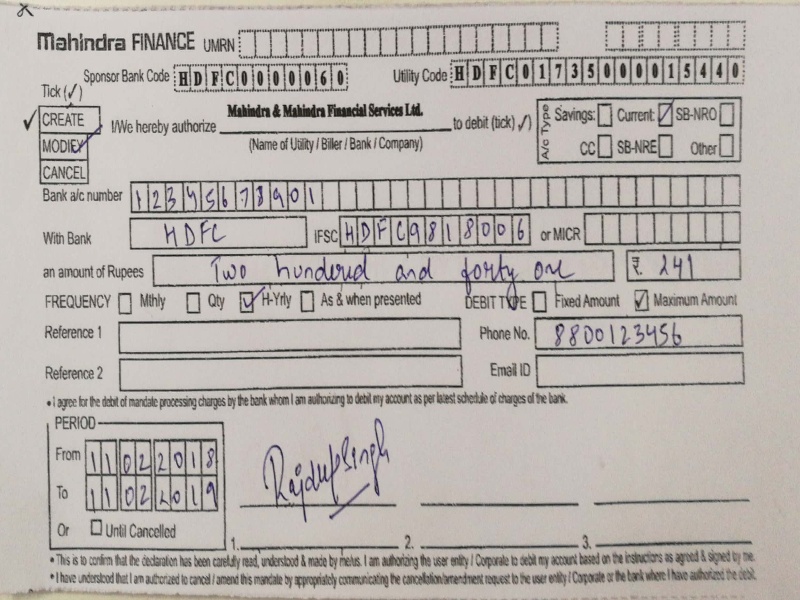 Mahindra FINANCE UMRN
Sponsor Bank Code HDFC0000060 Utility Code HDFC01735000015440
Tick (✓)
✓ CREATE
MODIFY
CANCEL
I/We hereby authorize Mahindra & Mahindra Financial Services Ltd. to debit (tick ✓)
(Name of Utility / Biller / Bank / Company)
A/c Type Savings: Current: ✓ SB-NRO
CC SB-NRE Other
Bank a/c number 12345678901
With Bank HDFC IFSC HDFC9818006 or MICR
an amount of Rupees Two hundred and forty one ₹. 241
FREQUENCY Mthly Qty ✓ H-Yrly As & when presented DEBIT TYPE Fixed Amount ✓ Maximum Amount
Reference 1 Phone No. 8800123456
Reference 2 Email ID
• I agree for the debit of mandate processing charges by the bank whom I am authorizing to debit my account as per latest schedule of charges of the bank.
PERIOD
From 11022018
To 11022019
Or Until Cancelled
Singh
1. 2. 3.
• This is to confirm that the declaration has been carefully read, understood & made by me/us. I am authorizing the user entity / Corporate to debit my account based on the instructions as agreed & signed by me.
• I have understood that I am authorized to cancel / amend this mandate by appropriately communicating the cancellation/amendment request to the user entity / Corporate or the bank where I have authorized the debit.